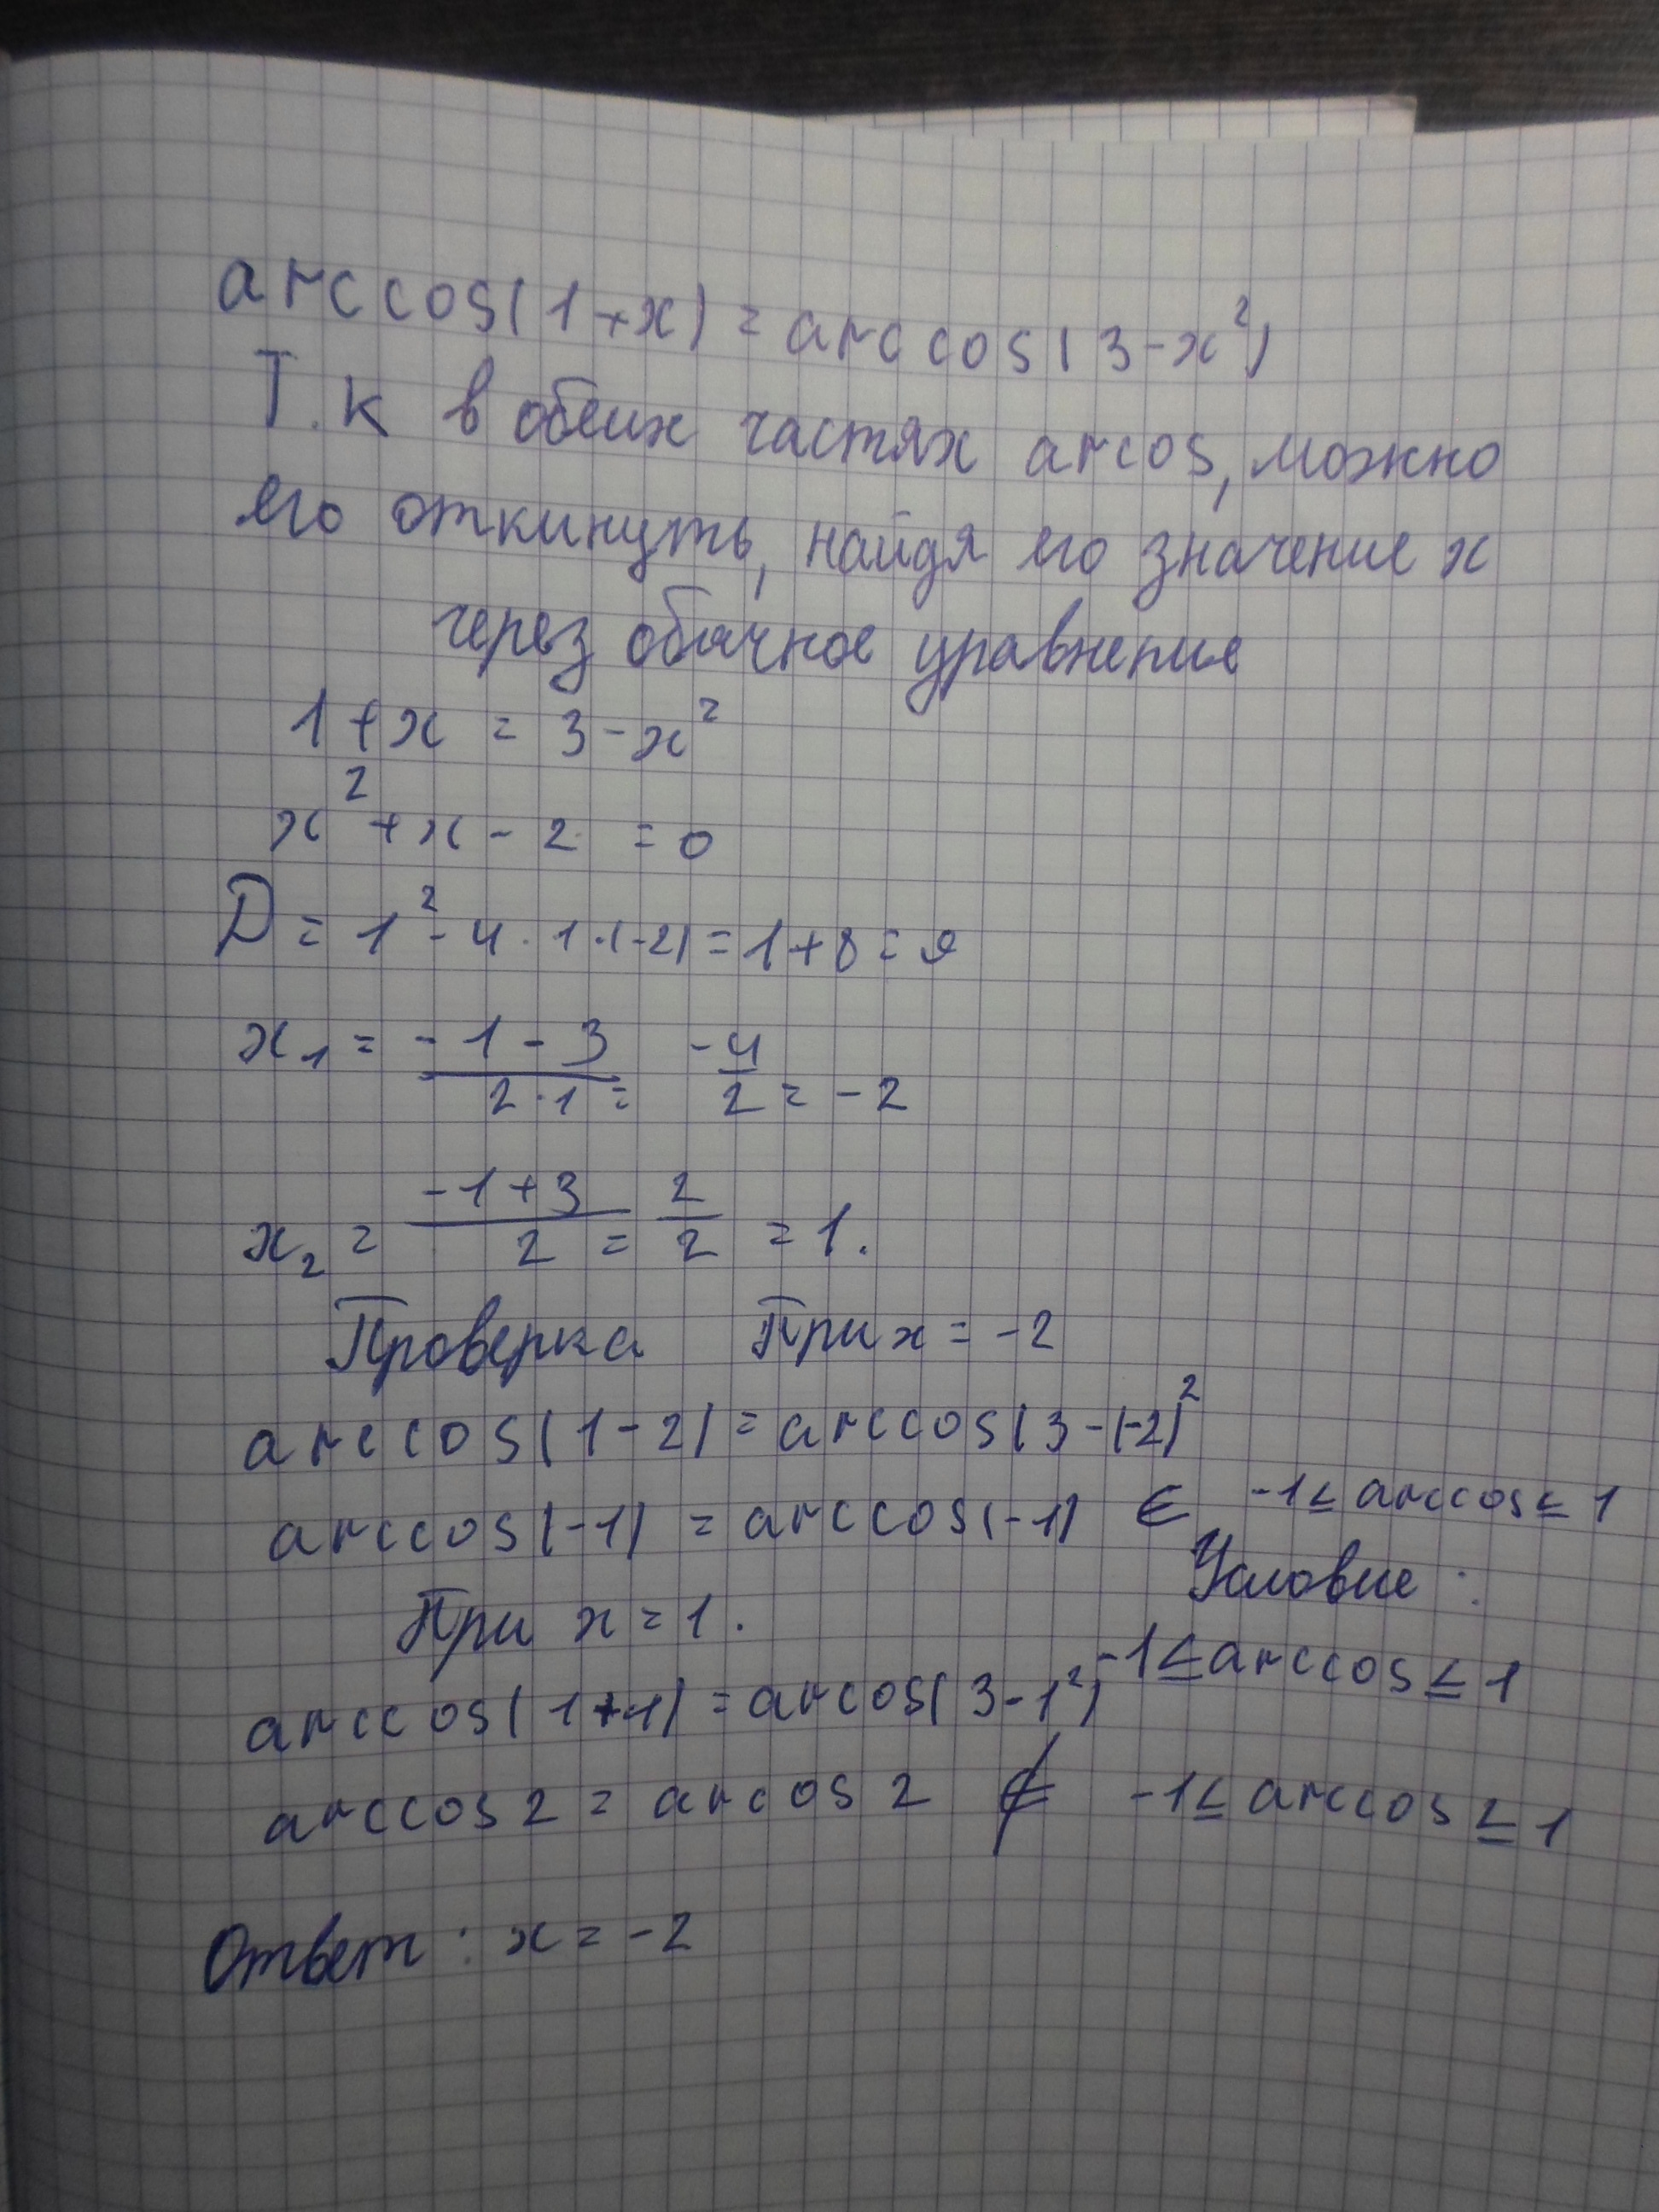 arccos(1+x) = arccos(3-x²)
Т.к в обеих частях arcos, можно
его откинуть, найдя его значение x
через обычное уравнение
1+x = 3-x²
x²+x-2 = 0
D = 1²-4·1·(-2) = 1+8 = 9
x₁ = (-1-3)/(2·1) = -4/2 = -2
x₂ = (-1+3)/2 = 2/2 = 1.
Проверка При x = -2
arccos(1-2) = arccos(3-(-2)²
arccos(-1) = arccos(-1) ∈ -1 ≤ arccos ≤ 1
Условие :
При x = 1.
-1 ≤ arccos ≤ 1
arccos(1+1) = arcos(3-1²)
arccos 2 = arcos 2 ∉ -1 ≤ arccos ≤ 1
Ответ : x = -2